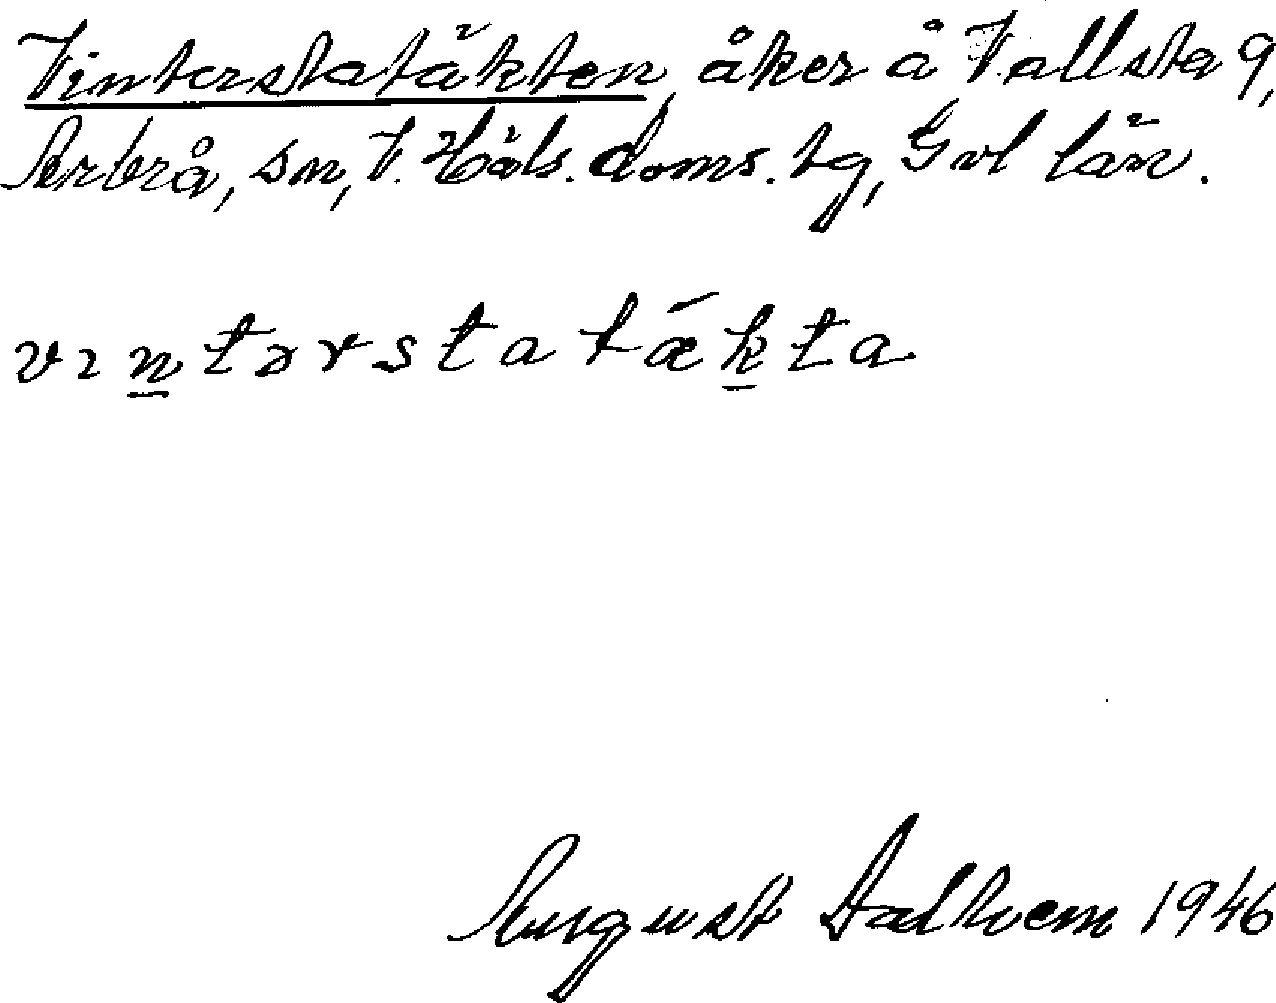 Vinterstatäkten, åker å Vallsta 9,
Arbrå, sn, V. Häls. doms. tg, Gvl län.
vıntərstatǽkta
August 1946